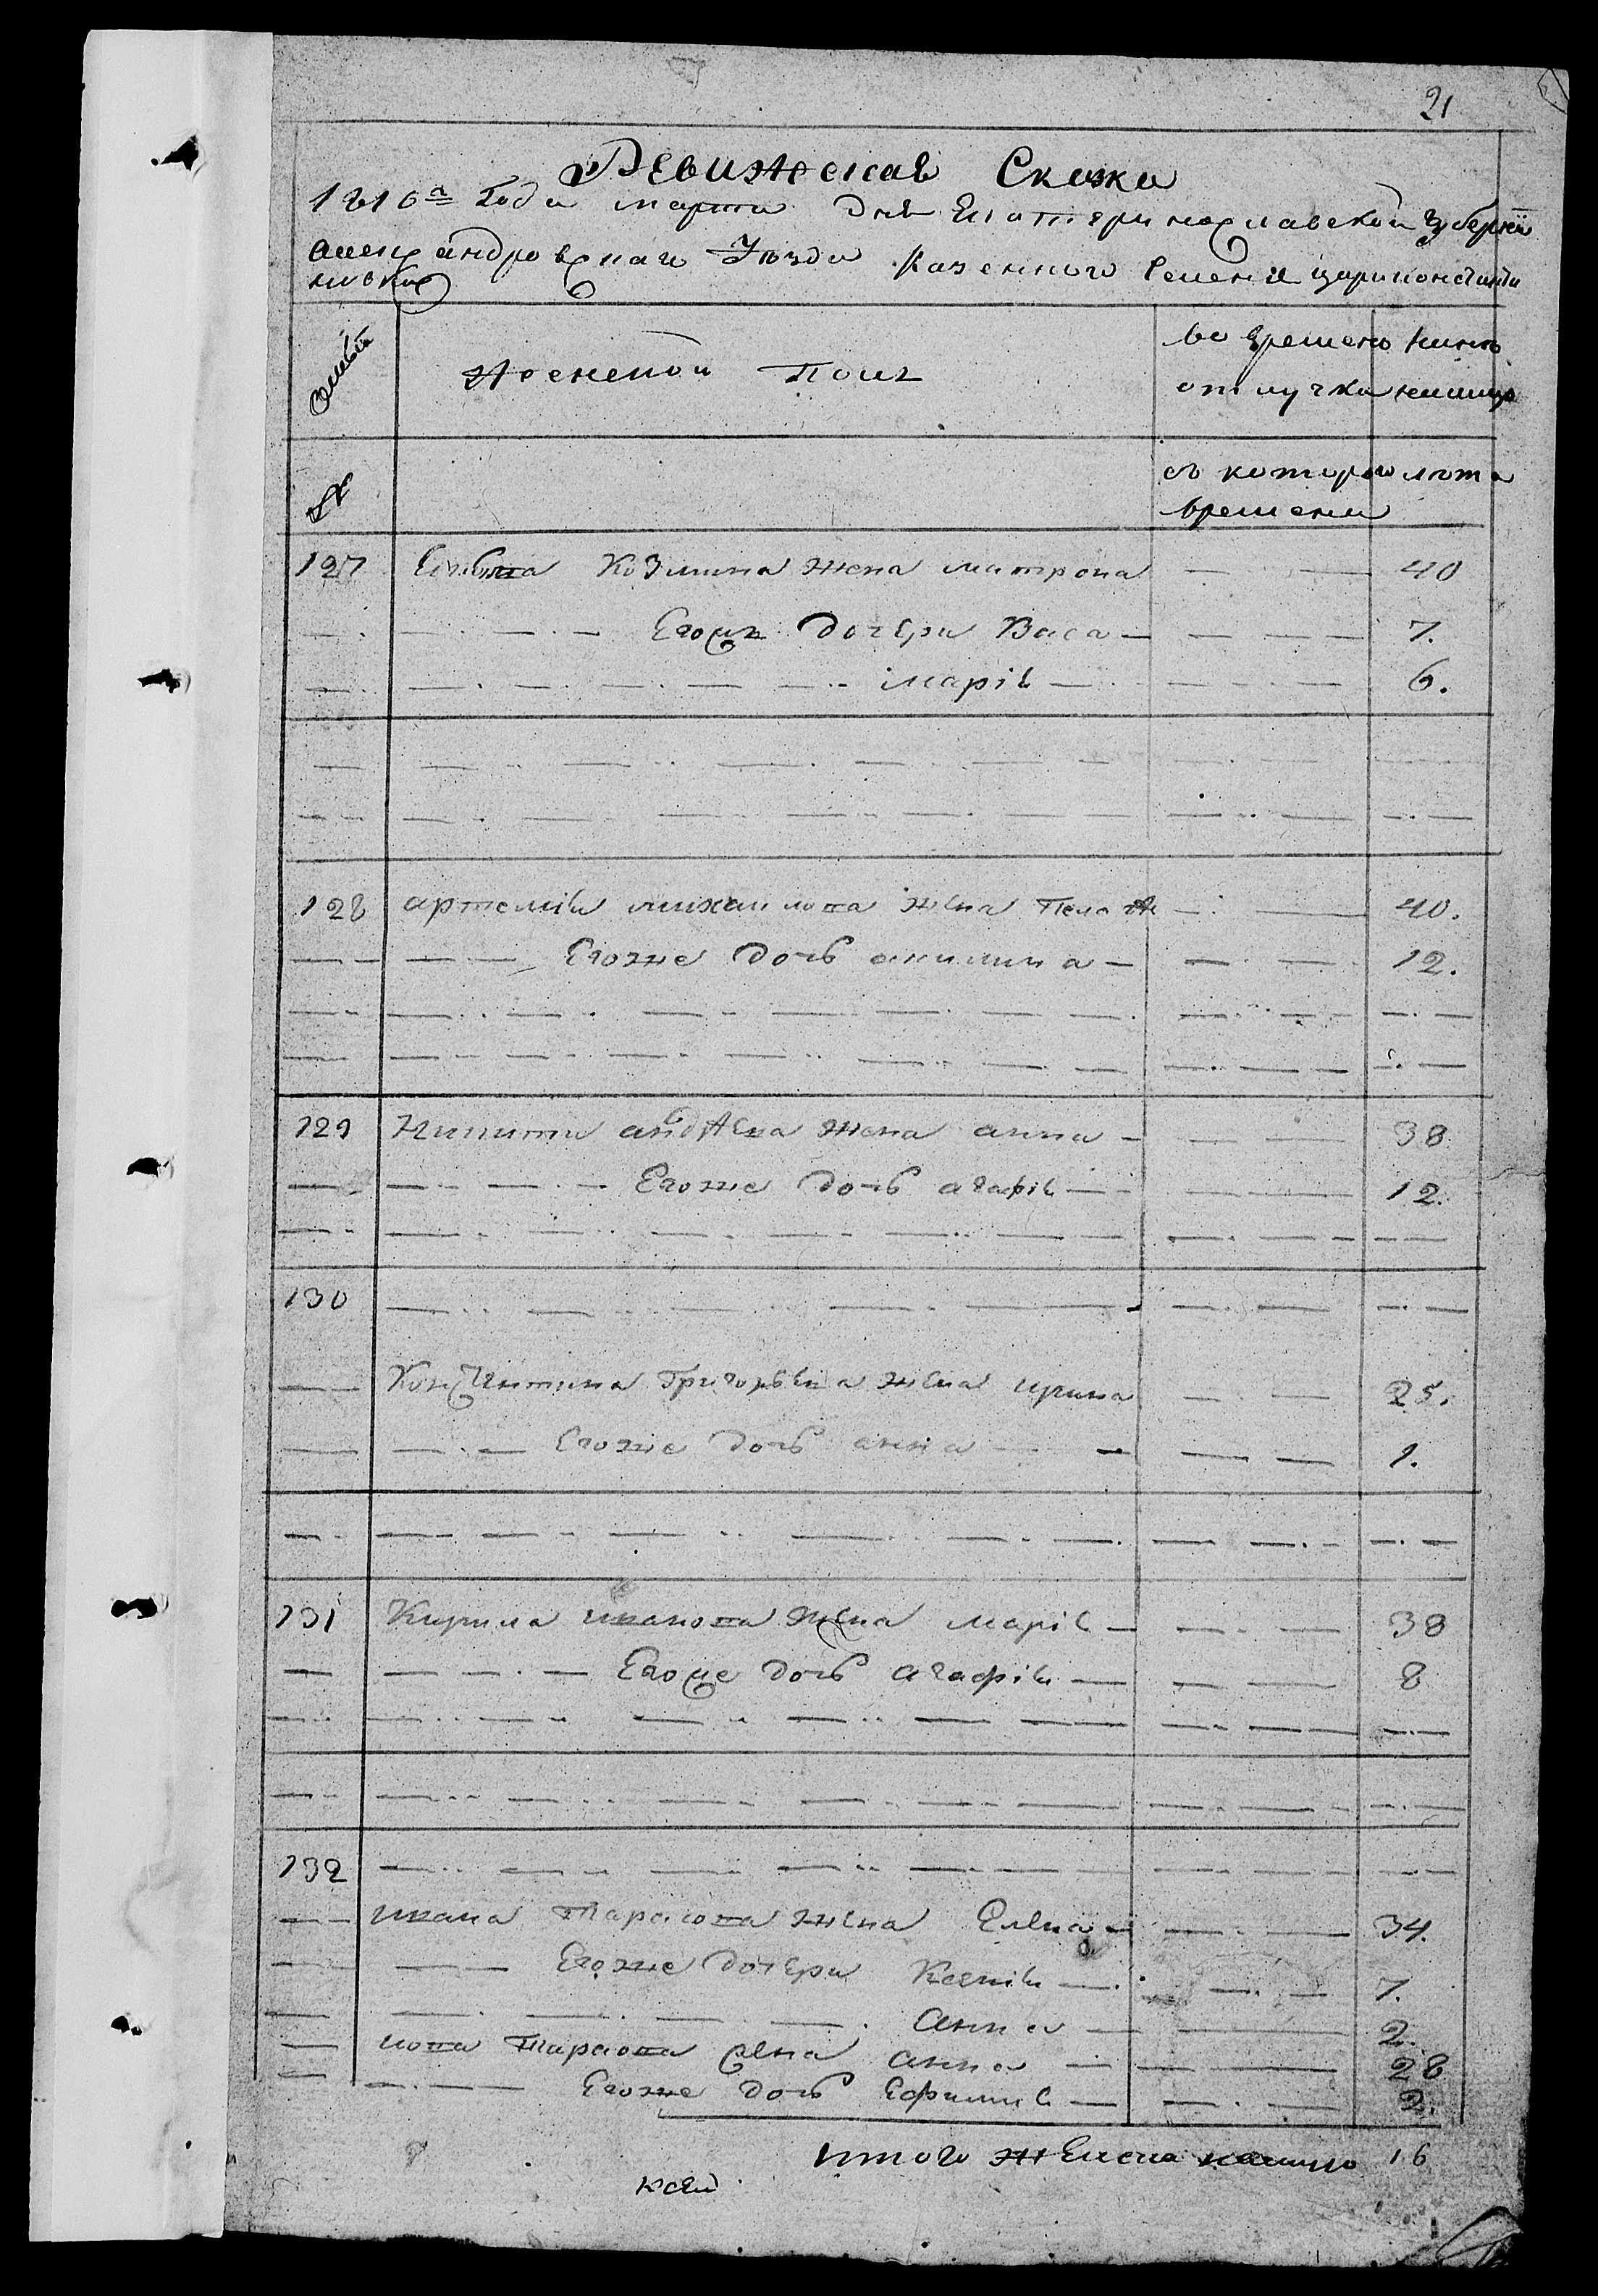 21
Ревижская Скажа
1816а Года марта дня Екатеринославской губернїи
александровскаго Уезда Казенного Селения цариконстанти
новки
семьи Женской Полъ во времено нынѣ
отлучки налицо
№ съ которого лѣта
времени
127 Козмина жена матрона 40
Егожъ дочери Васа 7.
марія 6.
128 артемія михаилова жена Пелагея 40.
Егоже дочь акилина 12.
129 Никиты андреева жена анна 38
Егоже дочь агафія 12.
130
Константина Григорьева жена ирина 25.
Егоже дочь анна 1.
131 Кирила иванова жена марія 38
Егоже дочь агафія 8
132
ивана Тарасова жена Елена 34.
Егоже дочери Ксенія 7.
анна 2.
Тарасова жена анна 28
Егоже дочь Ефимия 2.
итого женска налицо 16